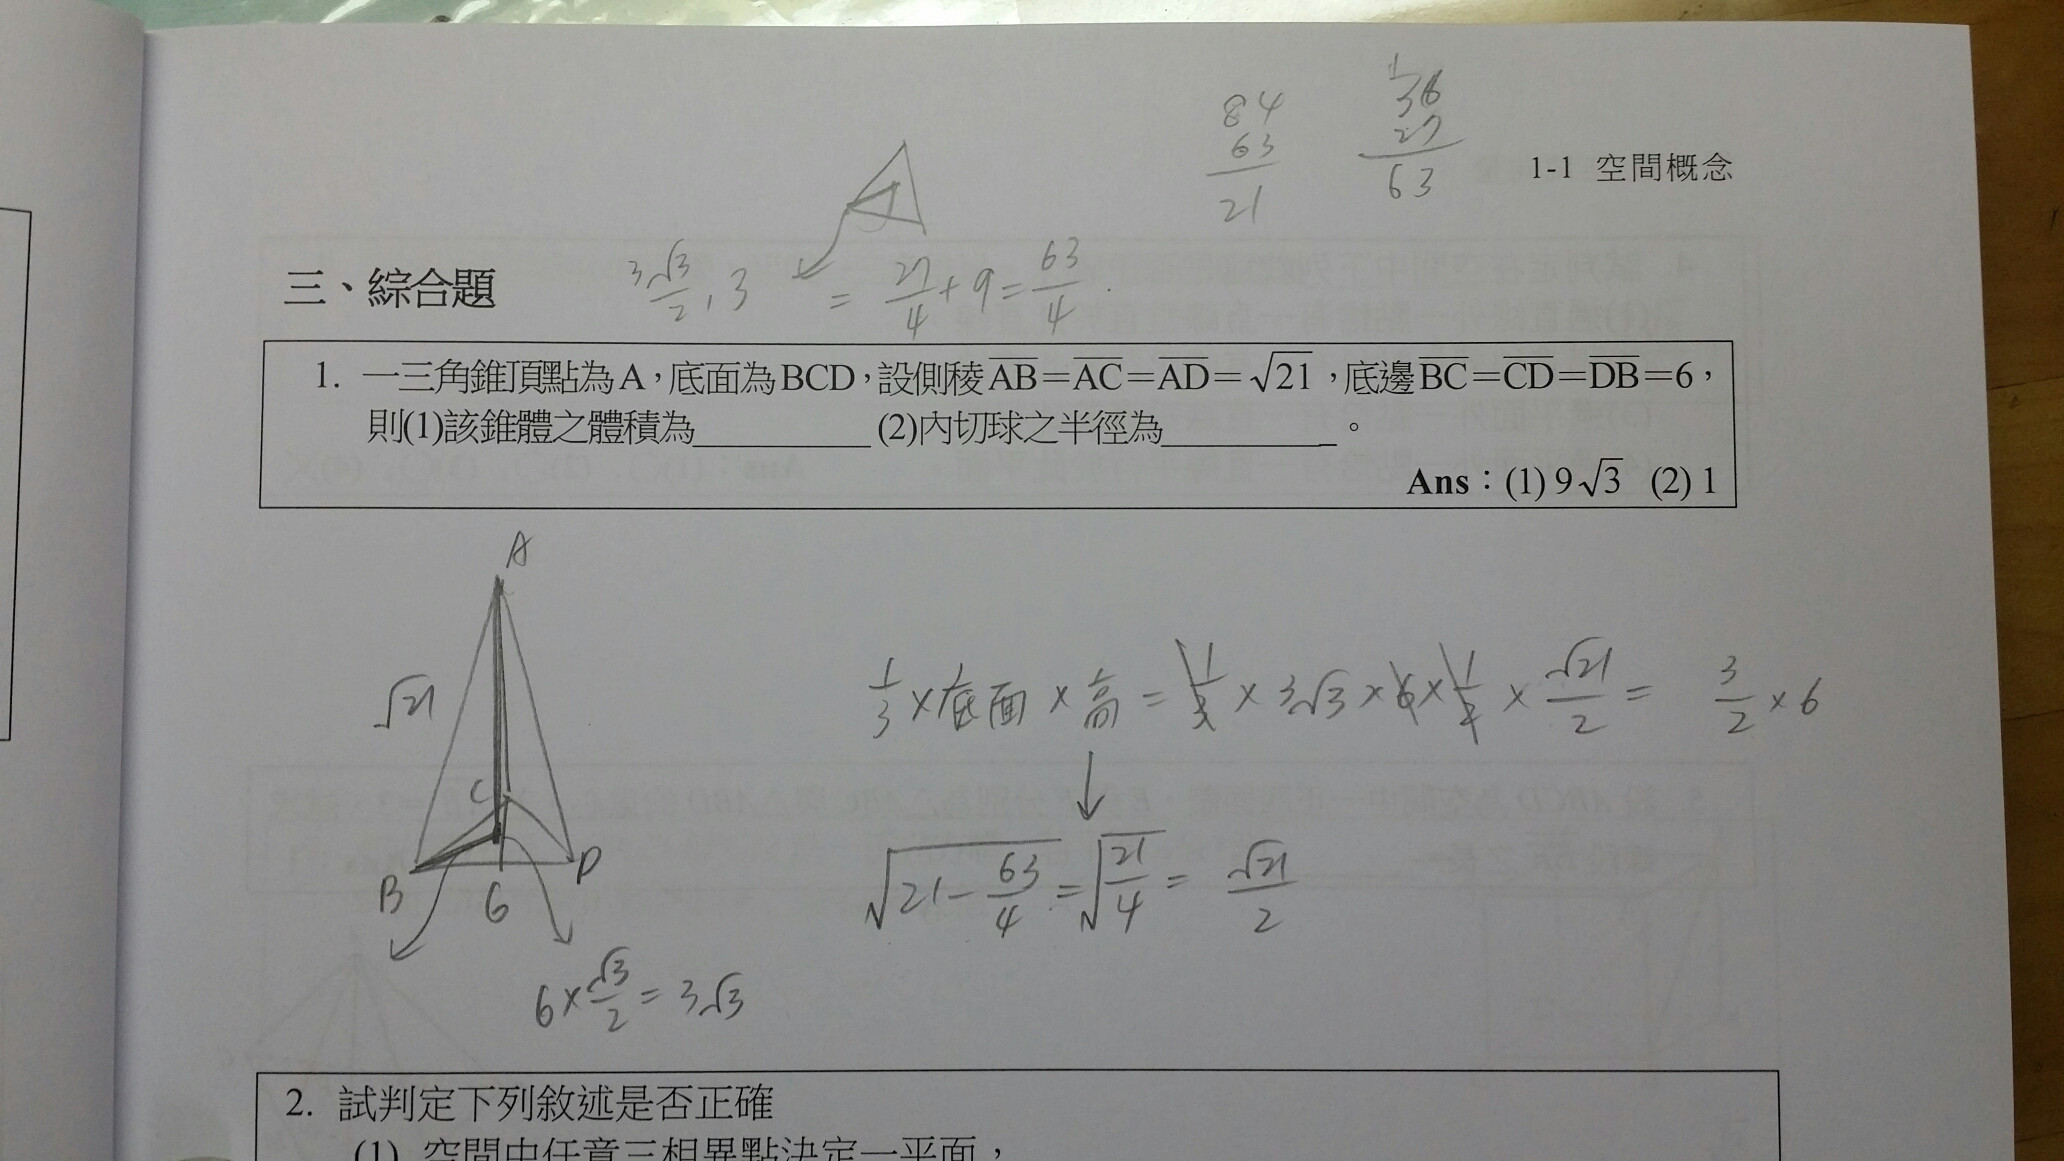 84
63
21
36
27
63
1-1 空間概念
三、綜合題
3√3/2 , 3
= 27/4 + 9 = 63/4
1. 一三角錐頂點為A，底面為BCD，設側稜AB＝AC＝AD＝√21，底邊BC＝CD＝DB＝6，
則(1)該錐體之體積為__________ (2)內切球之半徑為__________。
Ans：(1) 9√3 (2) 1
A
√21
C
B
D
6
6×√3/2 = 3√3
1/3 × 底面 × 高 = 1/3 × 3√3 × 6 × 1/2 × √21/2 = 3/2 × 6
√(21 - 63/4) = √(21/4) = √21/2
2. 試判定下列敘述是否正確
(1) 空間中任意三相異點決定一平面，